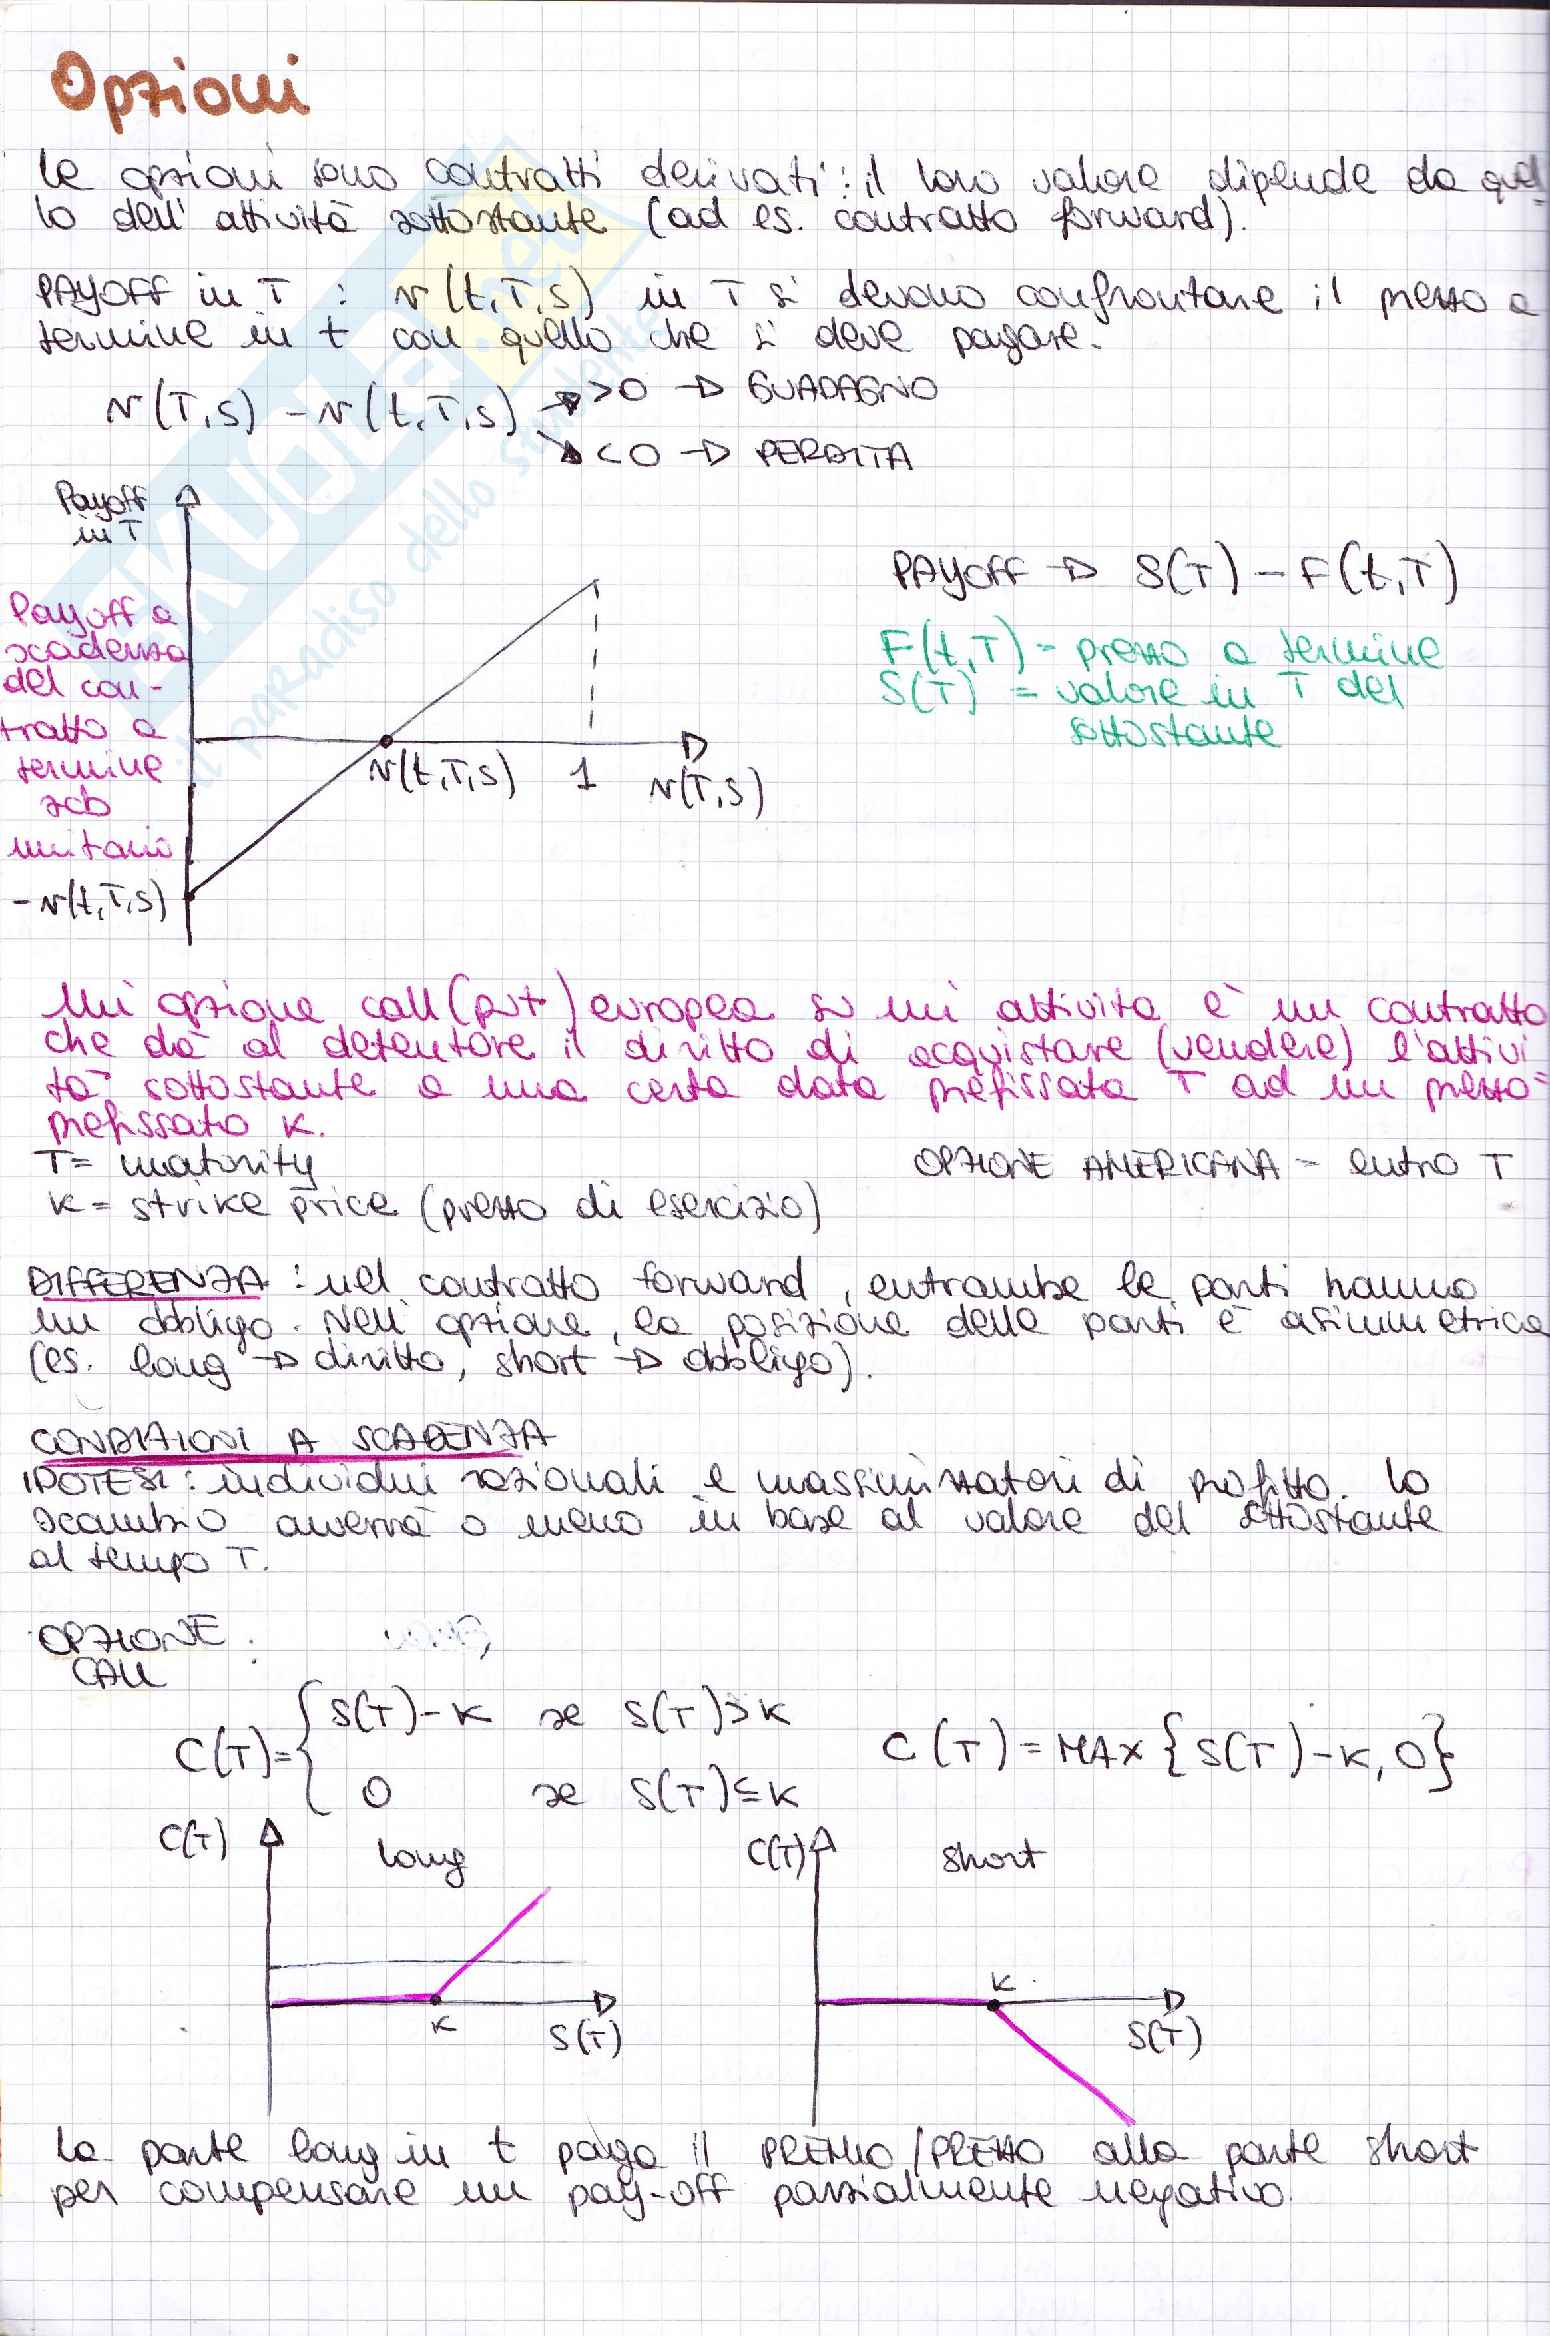 Opzioni
Le opzioni sono contratti derivati: il loro valore dipende da quel
lo dell'attività sottostante (ad es. contratto forward).
PAYOFF in T : v(t,T,s) in T si devono confrontare il prezzo a
termine in t con quello che si deve pagare.
v(T,s) - v(t,T,s) >0 → GUADAGNO
<0 → PERDITA
Payoff
in T
PAYOFF → S(T) - F(t,T)
F(t,T) = prezzo a termine
S(T) = valore in T del
sottostante
Payoff a
scadenza
del con-
tratto a
termine
zcb
unitario
v(t,T,s) 1 v(T,s)
-v(t,T,s)
Un'opzione call (put) europea su un'attività è un contratto
che dà al detentore il diritto di acquistare (vendere) l'attivi
tà sottostante a una certa data prefissata T ad un prezzo
prefissato K.
T= maturity OPZIONE AMERICANA = entro T
K= strike price (prezzo di esercizio)
DIFFERENZA: nel contratto forward, entrambe le parti hanno
un obbligo. Nell'opzione, la posizione delle parti è asimmetrica
(es. long → diritto, short → obbligo).
CONDIZIONI A SCADENZA
IPOTESI: individui razionali e massimizzatori di profitto. Lo
scambio avverrà o meno in base al valore del sottostante
al tempo T.
OPZIONE :
CALL
C(T)= { S(T)-K se S(T)>K
0 se S(T)≤K
C(T) = MAX {S(T)-K, 0}
C(T) long
K S(T)
C(T) short
K S(T)
La parte long in t paga il PREMIO/PREZZO alla parte short
per compensare un pay-off parzialmente negativo.
SKUOLA.net
il paradiso dello studente